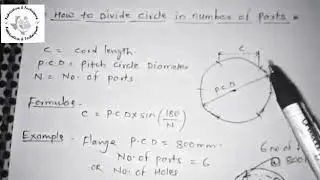 How to Divide Circle in number of Parts
C = cord length
P.C.D = Pitch Circle Diameter
N = No. of parts
C
P.C.D
Formula:-
C = P.C.D x sin(180/N)
Example - Flange P.C.D = 800mm
No. of parts = 6
OR No. of Holes
6 no. of
800